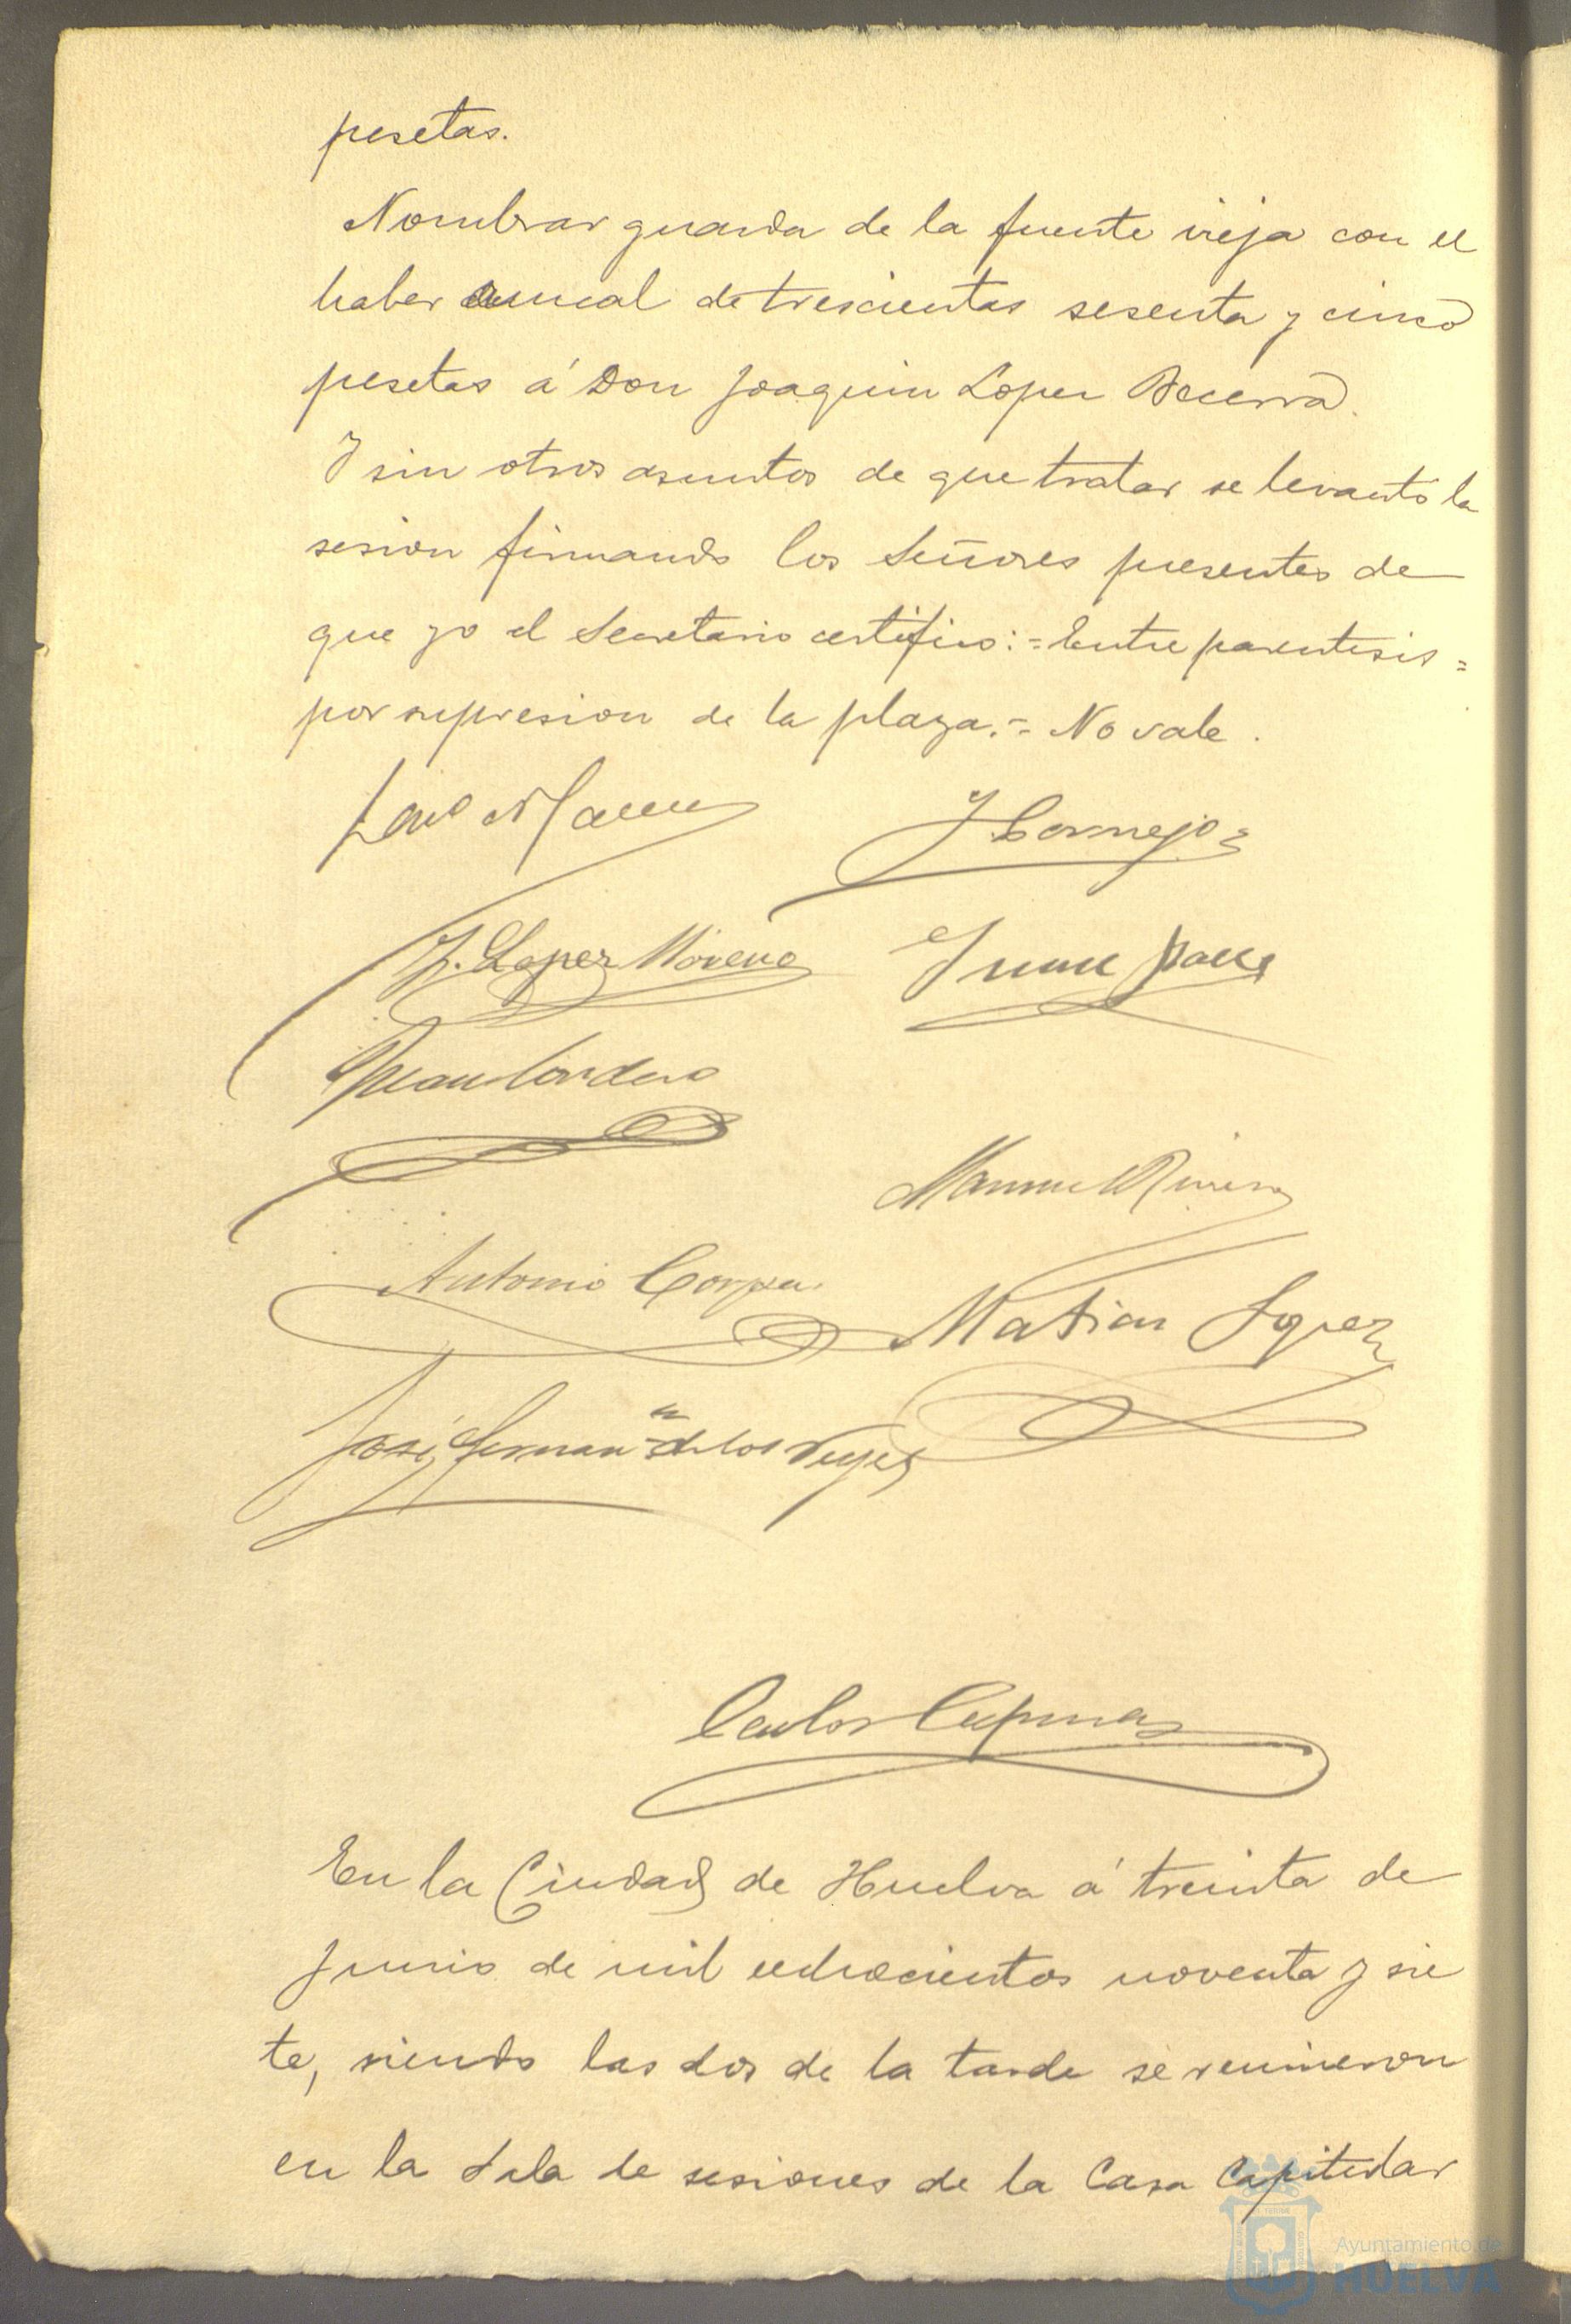 pesetas.
Nombrar guarda de la fuente vieja con el
haber anual de trescientas sesenta y cinco
pesetas á Don Joaquin Lopez Becerra.
Y sin otros asuntos de que tratar se levantó la
sesion firmando los Señores presentes de
que yo el Secretario certifico:=Entre parentesis=
por supresion de la plaza.=No vale.
J Cornejo
J. Lopez Moreno
Juan Cordero
Manuel
Antonio
Matias Lopez
José Fernan de los Reyes
Carlos
En la Ciudad de Huelva á treinta de
Junio de mil ochocientos noventa y sie
te, siendo las dos de la tarde se reunieron
en la Sala de sesiones de la Casa Capitular
Ayuntamiento de
HUELVA